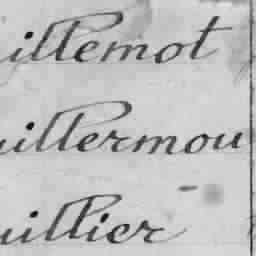 illemot
uillermou
uillier